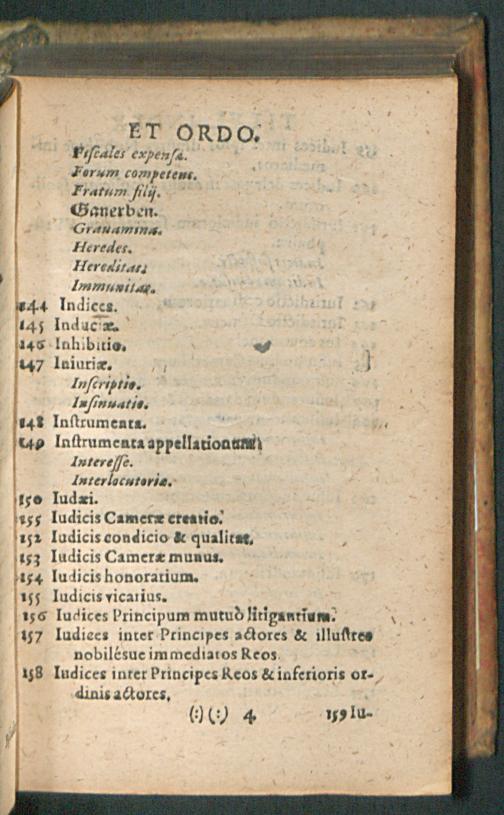 ET ORDO.
Fiscales expensæ.
Forum competens.
Fratum filij.
Ganerben.
Grauamina.
Heredes.
Hereditas.
Immunitas.
144 Indices.
145 Induciæ.
146 Inhibitio.
147 Iniuriæ.
Inscriptio.
Insinuatio.
148 Instrumenta.
149 Instrumenta appellationum.
Interesse.
Interlocutoriæ.
150 Iudæi.
155 Iudicis Cameræ creatio.
152 Iudicis condicio & qualitas.
153 Iudicis Cameræ munus.
154 Iudicis honorarium.
155 Iudicis vicarius.
156 Iudices Principum mutuò litigantium.
157 Iudices inter Principes actores & illustres
nobilésue immediatos Reos.
158 Iudices inter Principes Reos & inferioris or-
dinis actores.
(:) (:) 4 159 Iu-